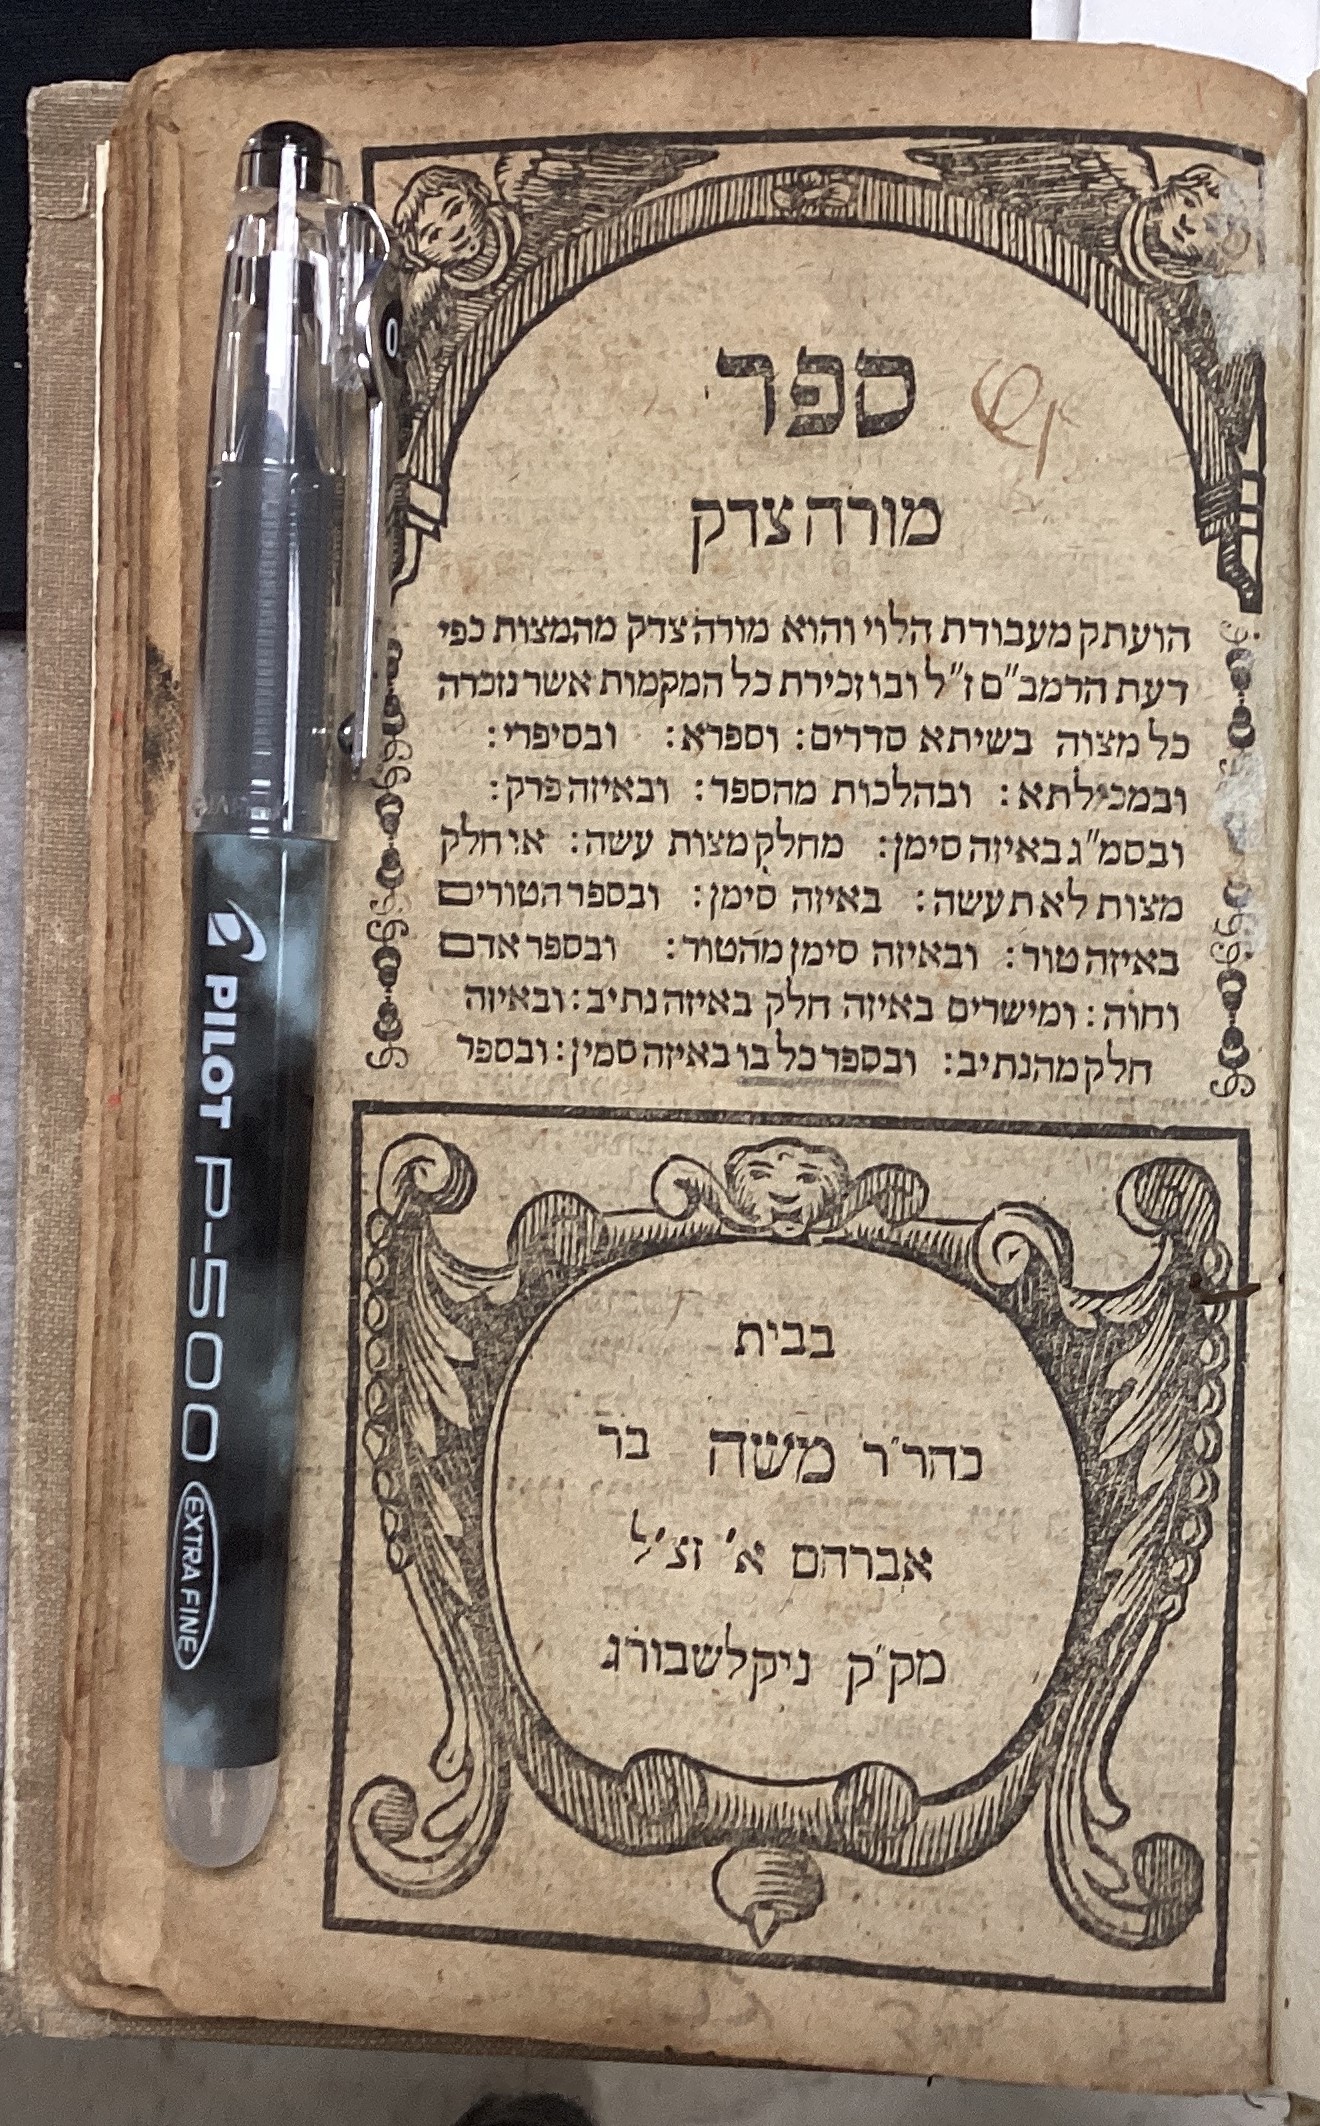 ספר
מורה צדק
הועתק מעבודת הלוי והוא מורה צדק מהמצות כפי
דעת הרמב״ם ז״ל ובו זכירת כל המקמות אשר נזכרה
כל מצוה בשיתא סדרים: וספרא: ובסיפרי:
ובמכילתא: ובהלכות מהספר: ובאיזה פרק:
ובסמ״ג באיזה סימן: מחלק מצות עשה: או חלק
מצות לא תעשה: באיזה סימן: ובספר הטורים
באיזה טור: ובאיזה סימן מהטור: ובספר אדם
וחוה: ומישרים באיזה חלק באיזה נתיב: ובאיזה
חלק מהנתיב: ובספר כל בו באיזה סמין: ובספר
בבית
כהר״ר משה בר
אברהם א׳ זצ״ל
מק״ק ניקלשבורג
PILOT P-500 EXTRA FINE